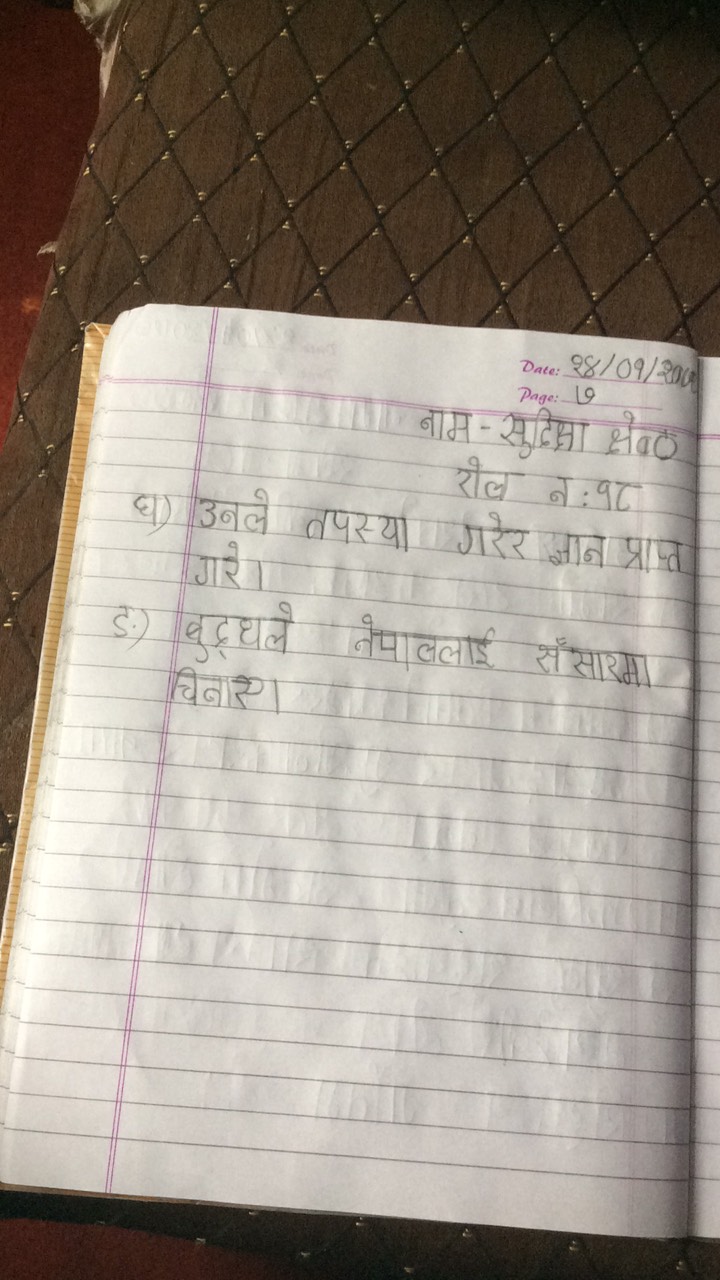 Date: २८/०१/२०
Page: ७
नाम - सुदिक्षा
रोल न : १८
घ) उनले तपस्या गरेर ज्ञान प्राप्त
गरे।
ङ) बुद्धले नेपाललाई सँसारमा
चिनाए।